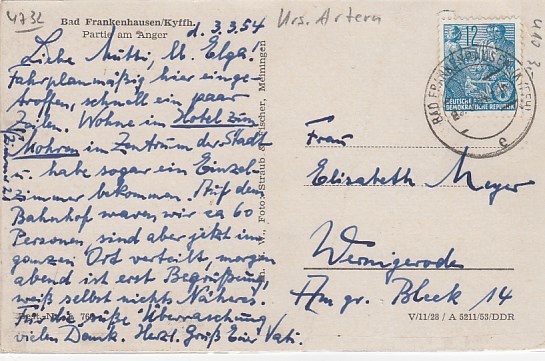 4732
Bad Frankenhausen/Kyffh.
Partie am Anger
d. 3.3.54
Liebe Mutti, lb. Elga!
Fahrplanmäßig hier einge-
troffen, schnell ein paar
Zeilen. Wohne im Hotel zum
Mohren im Zentrum der Stadt
u. habe sogar ein Einzel-
zimmer bekommen. Auf dem
Bahnhof waren wir ca 60
Personen, sind aber jetzt im
ganzen Ort verteilt, morgen
abend ist erst Begrüßung,
weiß selbst nichts Näheres.
Für die süße Überraschung
vielen Dank. Herzl. Gruß Euer Vati.
Zimmer 21
Foto: Straub & Fischer, Meiningen
Krs. Artern
12
DEUTSCHE
DEMOKRATISCHE REPUBLIK
BAD FRANKENHAUSEN
c
Frau
Elisabeth Meyer
Wernigerode
Am gr. Bleek 14
V/11/28 / A 5211/53/DDR